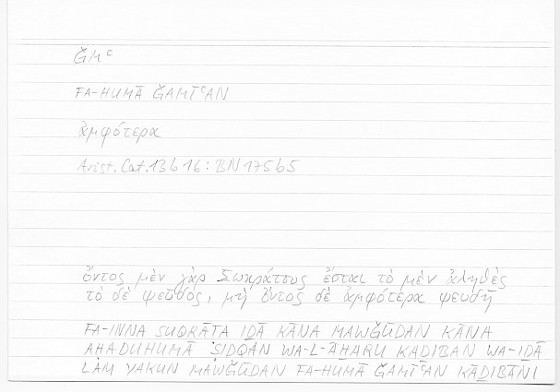 ǦMʿ
FA-HUMĀ ǦAMĪʿAN
ἀμφότερα
Arist. Cat. 13b16 : BN 175b5
ὄντος μὲν γὰρ Σωκράτους ἔσται τὸ μὲν ἀληθὲς
τὸ δὲ ψεῦδος, μὴ ὄντος δὲ ἀμφότερα ψευδῆ
FA-INNA SUQRĀTA IḎĀ KĀNA MAWǦŪDAN KĀNA
AḤADUHUMĀ ṢIDQAN WA-L-ĀḪARU KAḎIBAN WA-IḎĀ
LAM YAKUN MAWǦŪDAN FA-HUMĀ ǦAMĪʿAN KĀḎIBĀNI